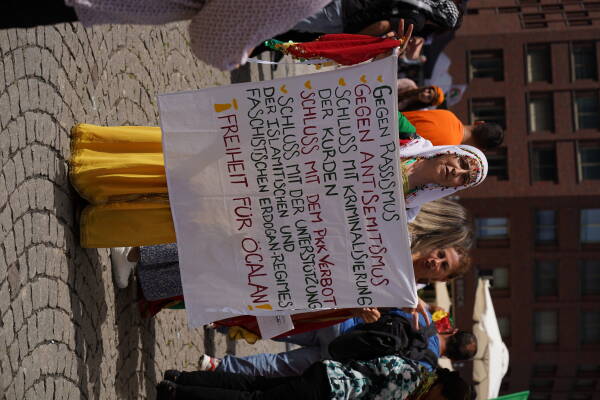 GEGEN RASSISMUS
GEGEN ANTISEMITSMUS
SCHLUSS MIT KRIMINALSIERUNG
DER KURDEN
SCHLUSS MIT DEM PKK VERBOT
SCHLUSS MIT DER UNTERSTÜTZUNG
DER ISLAMITISCHEN UND
FASCHISTISCHEN ERDOGAN-REGIMES
! FREIHEIT FÜR ÖCALAN!